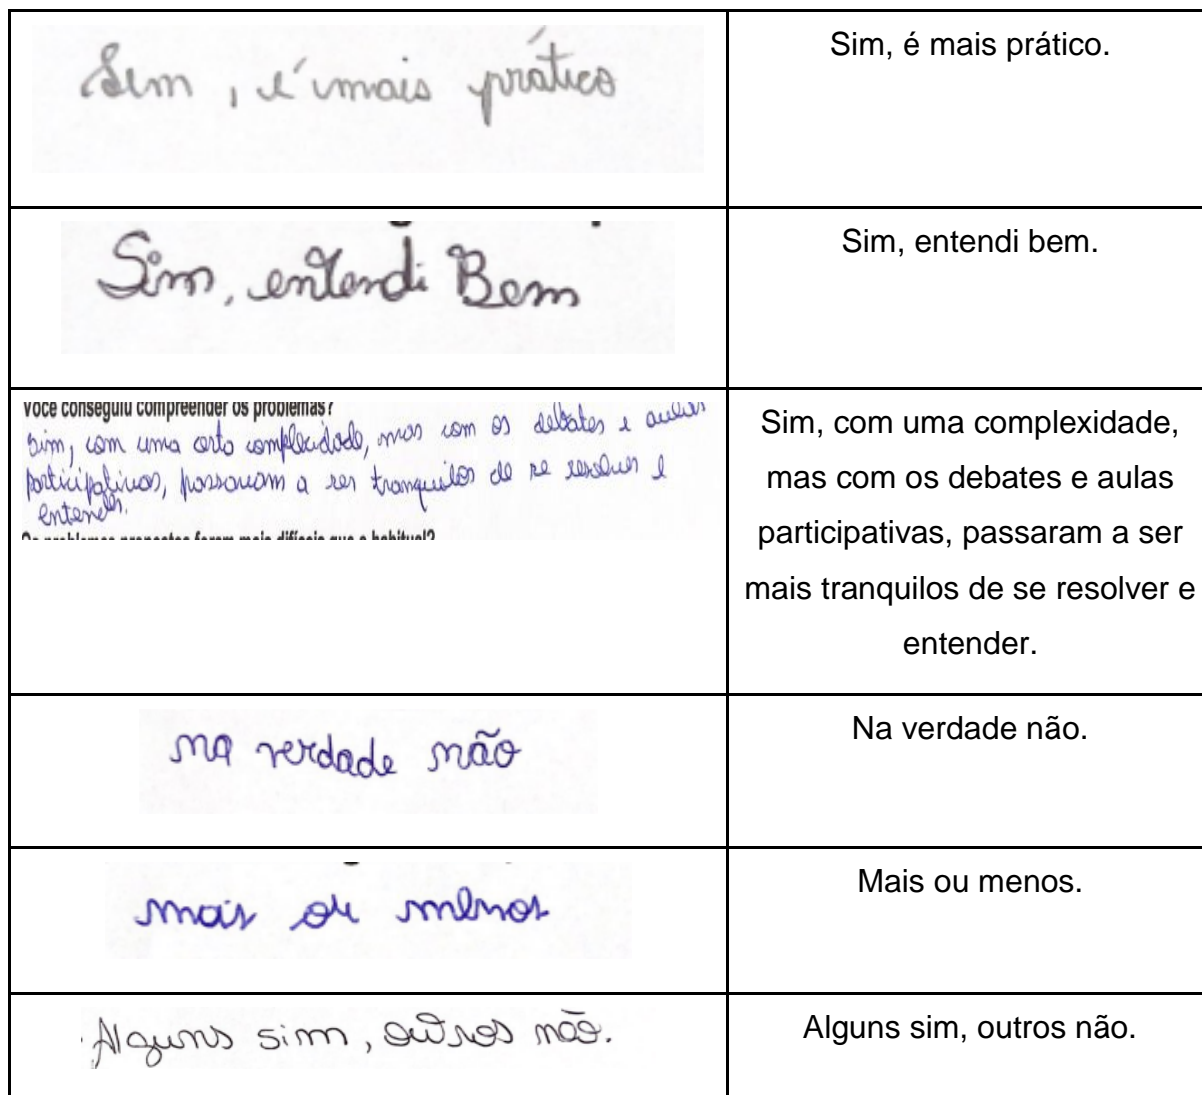 Sim, é mais prático
Sim, é mais prático.
Sim, entendi Bem
Sim, entendi bem.
Você conseguiu compreender os problemas?
Sim, com uma certo complexidade, mas com os debates e aulas
participativas, passaram a ser tranquilos de se resolver e
entender.
Os problemas propostos foram mais difíceis que o habitual?
Sim, com uma complexidade,
mas com os debates e aulas
participativas, passaram a ser
mais tranquilos de se resolver e
entender.
na verdade não
Na verdade não.
mais ou menos
Mais ou menos.
Alguns sim, outros não.
Alguns sim, outros não.